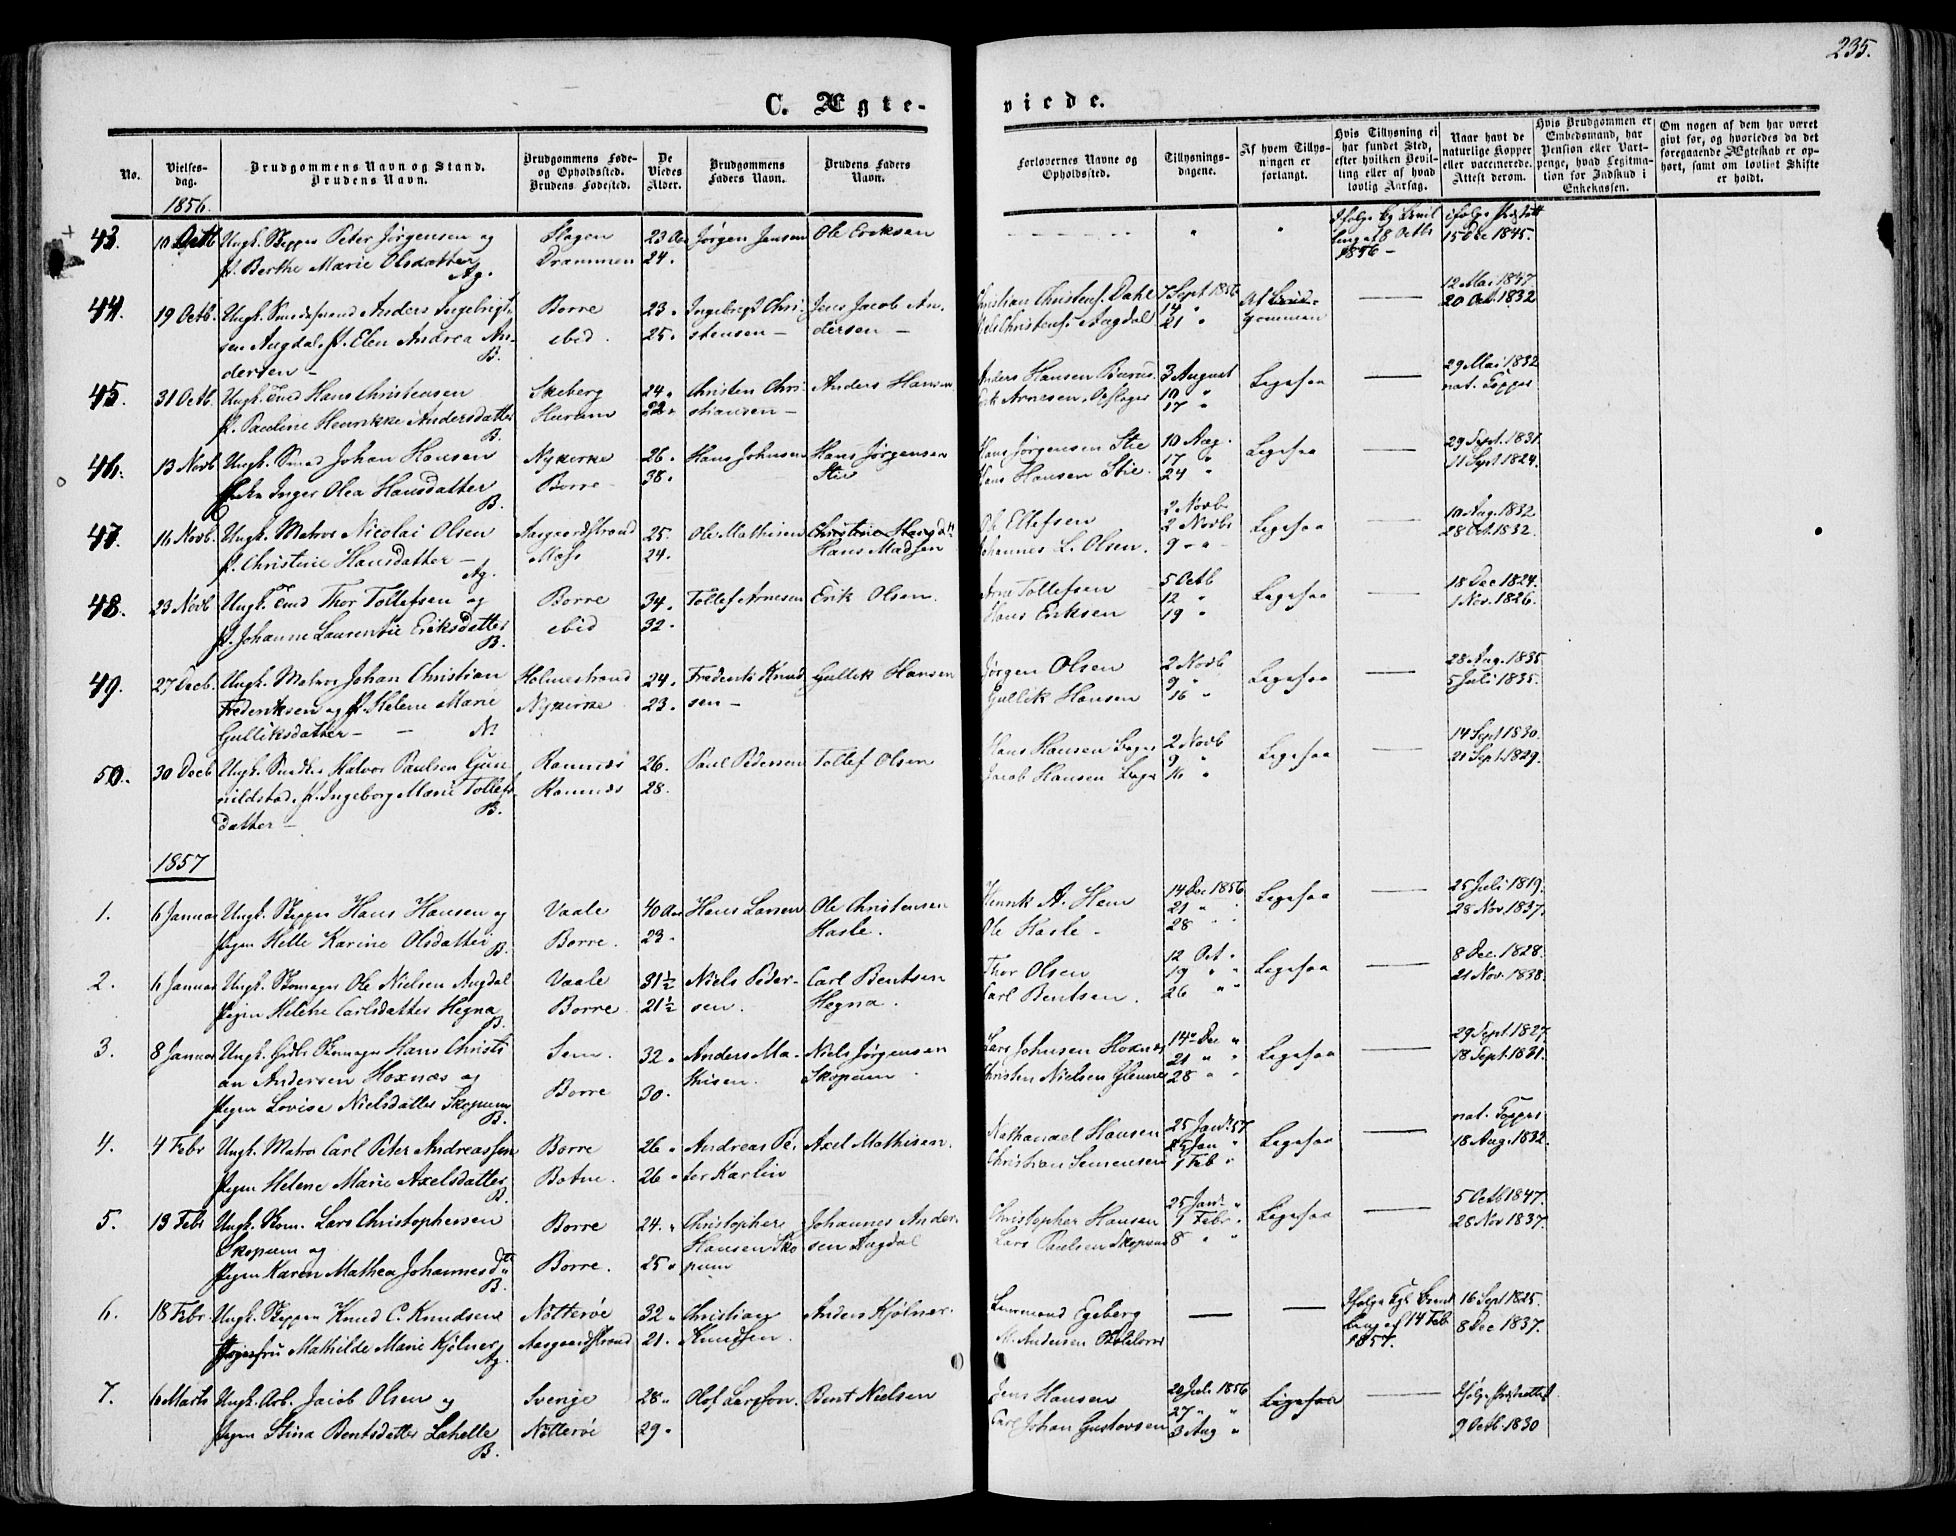 235.
C. Ægte-
viede.
No.
Vielses-
dag.
Brudgommens Navn og Stand.
Brudens Navn.
Brudgommens Føde-
og Opholdssted.
Brudens Fødested.
De
Viedes
Alder.
Brudgommens
Faders Navn.
Brudens Faders
Navn.
Forlovernes Navne og
Opholdssted.
Tillysnings-
dagene.
Af hvem Tillys-
ningen er
forlangt.
Hvis Tillysning ei
har fundet Sted,
efter hvilken Bevil-
ling eller af hvad
lovlig Aarsag.
Naar havt de
naturlige Kopper
eller vaccinerede.
Attest derom.
Hvis Brudgommen er
Embedsmand, har
Pension eller Vart-
penge, hvad Legitima-
tion for Indskud i
Enkekassen.
Om nogen af dem har været
gift før, og hvorledes da det
foregaaende Ægteskab er op-
hørt, samt om lovligt Skifte
er holdt.
1856.
43. 10 Octb Ungk. Skipper Peter Jørgensen og Slagen 23 Jørgen Jensen Ole Eriksen
P. Berthe Marie Olsdatter Drammen 24.
Ag.
18 Octb 15 Dec 1845.
1856 –
44. 19 Octb. Ungk. Anders Ingebrigt- Borre 23 " Ingebregt Chri- Jens Jacob An- Christian Christens. Dahl 7 Sept 1856 Af Brud- 12 Mai 1847
sen Augdal, P. Elen Andrea An- ebid. 25. stensen – dersen – Niels Christens. Augdal 14 " gommen 20 Oct. 1832
B. 21 "
dersen –
45. 31 Octb. Ungk. Hans Christensen Skeberg 24 " Christen Chri- Anders Hansen Anders Hansen 3 August Ligesaa 29 Mai 1832
P. Pauline Henrikke Andersdatter Hurum 22 " stiansen – Erik Arnesen 10 " nat. Kopper
B. 17 "
46. 13 Novb Ungk. Smed Johan Hansen Nykirke 26. Hans Johnsen Hans Jørgensen Hans Jørgensen Stie 10 Aug. Ligesaa 29 Sept. 1831.
Inger Olea Hansdatter Borre 38. Stie Hans Hansen Stie. 17 " 11 Sept 1824.
B. 24 "
47. 16 Novb. Ungk. Matros Nicolai Olsen Aasgaardstrand 25. Ole Mathisen Christine Hansd. Ole Ellefsen 2 Novb Ligesaa 10 Aug. 1832
P. Christine Hansdatter – Moss 24. Hans Madsen Johannes L. Olsen. 2 Novb 28 Oct. 1832.
Ag. 9 "
48. 23 Novb Ungk. Thor Tollefsen og Borre 34. Tollef Arnesen Erik Olsen. Arne Tollefsen 5 Octb Ligesaa 18 Dec 1824.
P. Johanne Laurentie Eriksdatter ebid 32. Hans Eriksen 12 " 1 Nov. 1826.
B. 19 "
49. 27 Decb. Ungk. Matros Johan Christian Holmestrand 24. Frederik Knud- Gullik Hansen Jørgen Olsen 2 Novb Ligesaa 28 Aug. 1835
Frederiksen og P. Helene Marie Nykirke 23. sen – Gullik Hansen 9 " 5 Juli 1835.
Gulliksdatter – N. 16 "
50. 30 Decb Ungk. Halvor Paulsen Gun- Ramnæs 26. Paul Pedersen Tollef Olsen Hans Hansen 2 Novb Ligesaa 14 Sept 1830.
nildstad, P. Ingeborg Marie Tollefs- Ramnæs 28. Jacob Hansen 9 " 21 Sept. 1829.
B. 16 "
datter –
1857
1. 6 Januar Ungk. Skipper Hans Hansen og Vaale 40 Hans Larsen Ole Christensen Henrik A. Hem 14 Dec 1856 Ligesaa 25 Juli 1819.
Pigen Helle Karine Olsdatter Borre. 23. Hasle. Ole Hasle – 21 " 28 Nov. 1837.
B. 28
2. 6 Januar Ungk. Ole Nielsen Augdal Vaale 31½ Niels Peder- Carl Bentsen Thor Olsen 12 Oct. Ligesaa 8 Dec. 1828.
Pigen Helene Carlsdatter Hegna Borre. 21½ sen. Hegna. Carl Bentsen. 19 " 21 Nov. 1838.
B. 26 "
3. 8 Januar Ungk. Hans Christi- Sem. 32 " Anders Ma- Niels Jørgensen Lars Johnsen Hoxnæs 14 Dec " Ligesaa 29 Sept 1827.
an Andersen Hoxnæs og thisen. Skopum. Christen Nielsen Glenne 21 " 18 Sept. 1831.
Pigen Lovise Nielsdatter Skopum Borre 30. 28 "
B.
4. 4 Febr Ungk. Matros Carl Peter Andreassen Borre 26 " Andreas Pe- Axel Mathisen. Nathanael Hansen 25 Jan. 57. Ligesaa nat. Kopper
Pigen Helene Marie Axelsdatter Botne. 26 " ter Karlin Christian Sennensen 25 Jan " 18 Aug. 1832.
B. 1 Feb "
5. 13 Febr Ungk. Lars Christophersen Borre 24. Christopher Johannes Ander- Christopher Hansen 25 Jan. " Ligesaa 5 Octb 1847.
Skopum og Hansen Sko- sen Augdal Lars Paulsen Skopum 1 Febr. 28 Nov 1837.
Pigen Karen Mathea Johannesd. Borre. 25 " pum 8 "
B.
6. 18 Febr. Ungk. Skipper Knud C. Knudsen Nøtterøe 32 " Christian Anders Kjølner. Egeberg 16 Sept 1825.
Jomfru Mathilde Marie Kjølner Aasgaardstrand 21. Knudsen. M. Andersen 14 Feb 8 Dec 1837.
Ag. 1857.
7. 6 Marts Ungk. Arb. Jacob Olsen og Sverige 28 " Olof Larsson. Bent Nielsen Jens Hansen 20 Juli 1856 Ligesaa
Pigen Stina Bentsdatter Lahelle Nøtterøe 29. Carl Johan Gustavsen 27 " 9 Octb. 1830
B. 3 Aug "